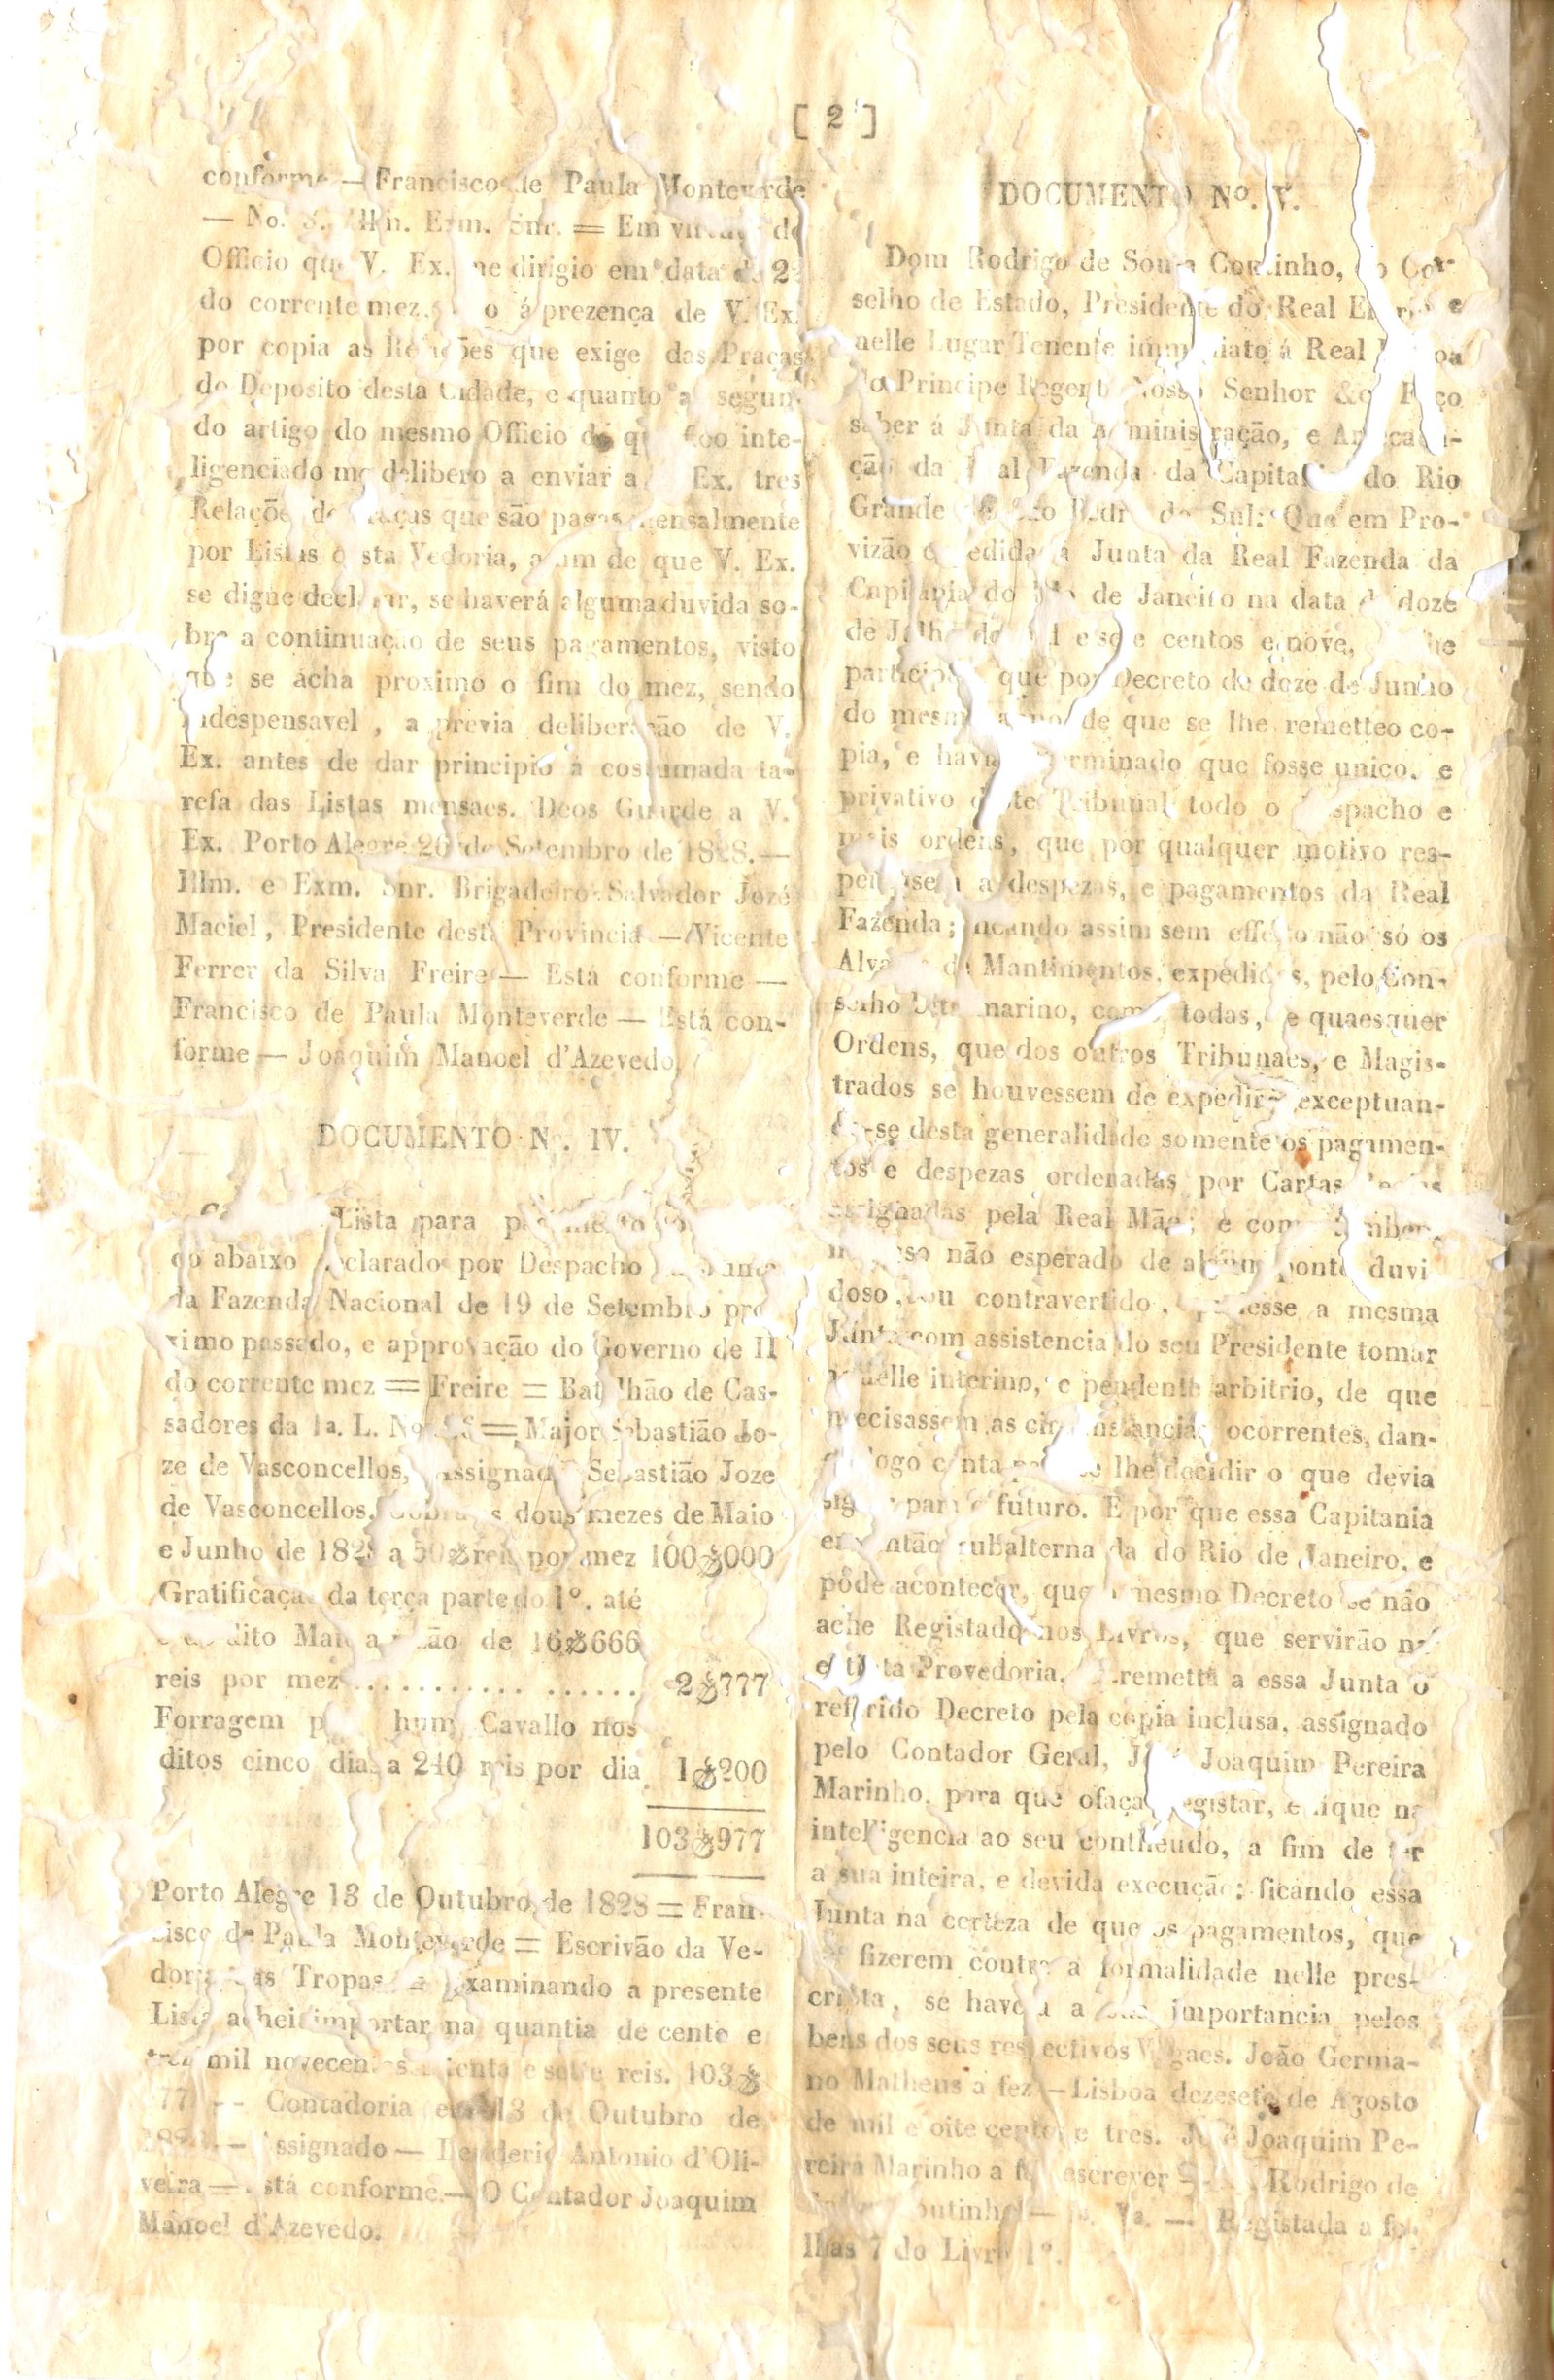 [ 2 ]
conforme — Francisco de Paula Monteverde
— No. Illm. Exm. Snr. = Em de
Officio que V. Ex. me dirigio em data de
do corrente mez, á prezença de V. Ex.
por copia as Relações que exige das Praças
do Deposito desta Cidade, e quanto ao segun-
do artigo do mesmo Officio de inte-
ligenciado me delibero a enviar a Ex. tres
Relações de Praças que são pagas mensalmente
por Listas Vedoria, a fim de que V. Ex.
se digne declarar, se haverá alguma duvida so-
bre a continuação de seus pagamentos, visto
que se acha proximo o fim do mez, sendo
indespensavel, a previa deliberação de V.
Ex. antes de dar principio á costumada ta-
refa das Listas mensaes. Deos Guarde a V.
Ex. Porto Alegre 26 de Setembro de 1828.—
Illm. e Exm. Snr. Brigadeiro Salvador Jozé
Maciel, Presidente desta Provincia — Vicente
Ferrer da Silva Freire — Está conforme —
Francisco de Paula Monteverde — Está con-
forme — Joaquim Manoel d'Azevedo.
DOCUMENTO No. IV.
Lista para
abaixo declarado por Despacho
da Fazenda Nacional de 19 de Setembro pro-
ximo passado, e approvação do Governo de 11
do corrente mez = Freire = Batalhão de Cas-
sadores da 1a. L. No = Major Sebastião Jo-
ze de Vasconcellos, assignado Sebastião Joze
de Vasconcellos. dous mezes de Maio
e Junho de 1828 a reis por mez 100$000
Gratificação da terça parte do 1º. até
dito de 16$666
reis por mez .................. 2$777
Forragem hum Cavallo nos
ditos cinco dias a 240 reis por dia 1$200
103$977
Porto Alegre 13 de Outubro de 1828 = Fran-
cisco de Paula Monteverde = Escrivão da Ve-
doria das Tropas = Examinando a presente
Lista achei importar na quantia de cento e
trez mil novecentos setenta e sette reis. 103$
977 -- Contadoria 13 de Outubro de
— Assignado — Antonio d'Oli-
veira — Está conforme.— O Contador Joaquim
Manoel d'Azevedo.
DOCUMENTO No. V.
Dom Rodrigo de Souza Coutinho, do Con-
selho de Estado, Presidente do Real Erario e
nelle Lugar Tenente immediato á Real Pessoa
do Principe Regente Nosso Senhor &c. Faço
saber á Junta da Administração, e Arrecada-
ção da Real Fazenda da Capitania do Rio
Grande de São Pedro do Sul: Que em Pro-
vizão expedida a Junta da Real Fazenda da
Capitania do Rio de Janeiro na data de doze
de Julho de centos e nove,
participou que por Decreto de doze de Junho
do mesmo anno de que se lhe remetteo co-
pia, e havia determinado que fosse unico, e
privativo deste Tribunal todo o Despacho e
mais ordens, que por qualquer motivo res-
peitassem a despezas, e pagamentos da Real
Fazenda; ficando assim sem effeito não só os
Alvarás de Mantimentos, expedidos, pelo Con-
selho Ultramarino, como, todas, e quaesquer
Ordens, que dos outros Tribunaes, e Magis-
trados se houvessem de expedir, exceptuan-
do-se desta generalidade somente os pagamen-
tos e despezas ordenadas por Cartas Regias
assignadas pela Real Mão; e
não esperado de algum ponto duvi
doso, ou contravertido, podesse a mesma
Junta com assistencia do seu Presidente tomar
aquelle interino, e pendente arbitrio, de que
precisassem as circunstancias ocorrentes, dan-
do logo conta para se lhe decidir o que devia
para o futuro. E por que essa Capitania
então subalterna da do Rio de Janeiro, e
póde acontecer, que o mesmo Decreto se não
ache Registado nos Livros, que servirão
Provedoria, remetta a essa Junta o
referido Decreto pela copia inclusa, assignado
pelo Contador Geral, José Joaquim Pereira
Marinho, para que ofaça Registar, e fique na
intelligencia ao seu contheudo, a fim de ter
a sua inteira, e devida execução: ficando essa
Junta na certeza de que os pagamentos, que
se fizerem contra a formalidade nelle pres-
cripta, se haverá a sua importancia pelos
bens dos seus respectivos Vogaes. João Germa-
no Matheus a fez — Lisboa dezesete de Agosto
de mil e oito centos e tres. José Joaquim Pe-
reira Marinho a fez escrever — Rodrigo de
Coutinho — Registada a fo-
lhas 7 do Livro 1º.